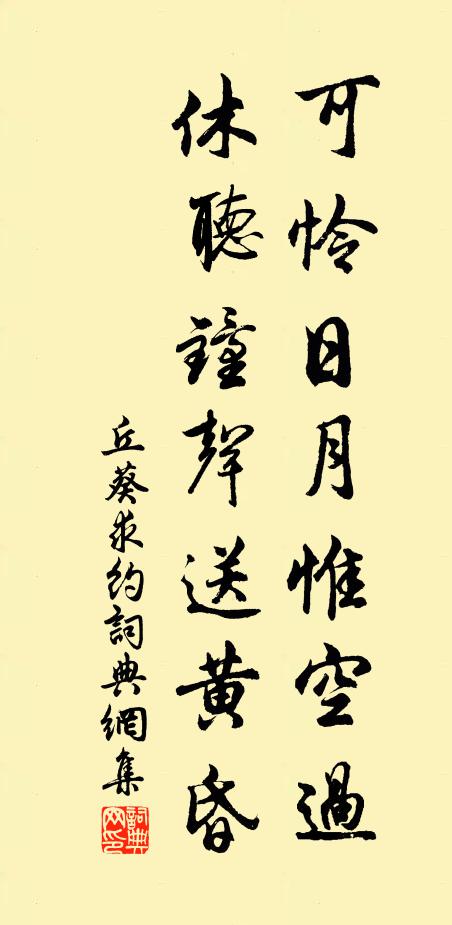 可怜日月惟空過
休聽鐘聲送黃昏
丘葵求約詞典網集
詞典網印